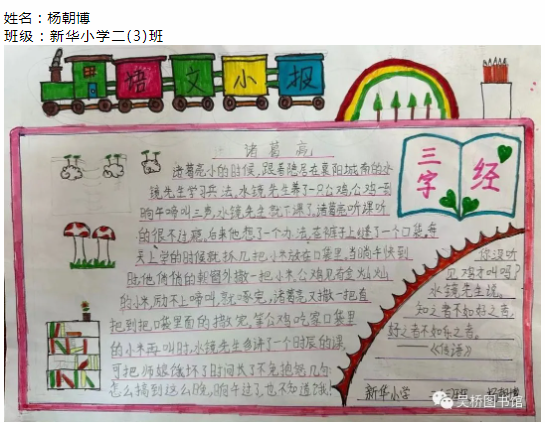 姓名：杨朝博
班级：新华小学二(3)班
语文小报
诸葛亮
诸葛亮小的时候，跟着隐居在襄阳城南的水
镜先生学习兵法，水镜先生养了一只公鸡，公鸡一到
晌午啼叫三声，水镜先生就下课了，诸葛亮听课听
的很不过瘾，后来他想了一个办法，在裤子上缝了一个口袋，每
天上学的时候就抓几把小米放在口袋里，当晌午快到
时，他悄悄的朝窗外撒一把小米，公鸡见有金灿灿
的小米，顾不上啼叫，就啄完，诸葛亮又撒一把直
把到把口袋里面的撒完，等公鸡吃完口袋里
的小米再叫时，水镜先生多讲了一个时辰的课
可把师娘饿坏了时间长了不免抱怨几句
怎么搞到这么晚，晌午过了，也不知道饿！
三字经
你没听
见鸡才叫吗？
水镜先生说。
知之者不如好之者，
好之者不如乐之者。
《论语》
新华小学
杨朝博
吴桥图书馆